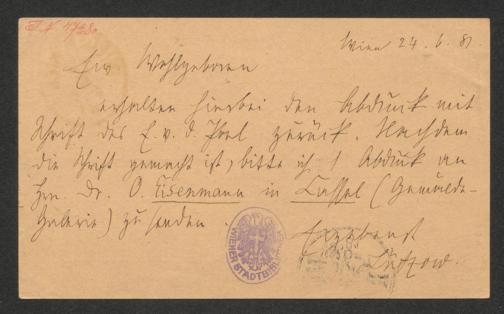 Wien 24.6.81.
Ew Wohlgeboren
erhalten hierbei den Abdruck mit
Schrift des E. v. d. zurück. Nachdem
die Schrift gemacht ist, bitte ich 1 Abdruck an
Hrn. Dr. O. Eisenmann in Cassel (Gemälde-
Galerie) zu senden
Ergebenst
Lützow.
WIENER STADTBIBL